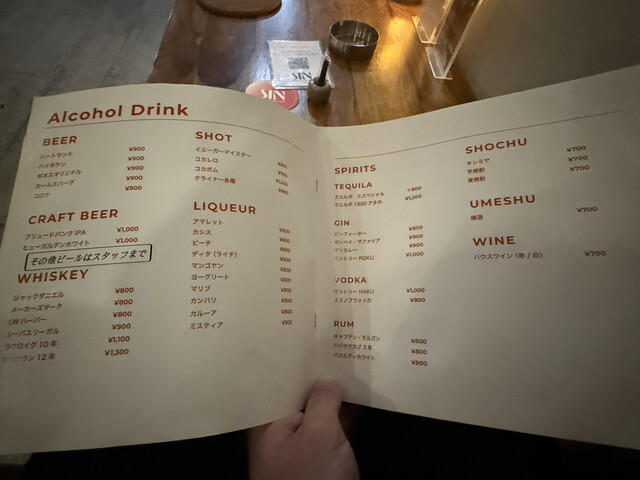 Alcohol Drink
BEER
ハートランド ¥900
ハイネケン ¥900
ギネスオリジナル ¥900
カールスバーグ ¥900
コロナ ¥900
CRAFT BEER
ブリュードバンク IPA ¥1,000
ヒューガルデンホワイト ¥1,000
その他ビールはスタッフまで
WHISKEY
ジャックダニエル ¥800
メーカーズマーク ¥800
I.W ハーパー ¥800
シーバスリーガル ¥900
ラフロイグ 10 年 ¥1,100
ラン 12 年 ¥1,300
SHOT
イエーガーマイスター
コカレロ
コカボム
クライナー各種
LIQUEUR
アマレット ¥800
カシス ¥800
ピーチ ¥800
ディタ (ライチ) ¥800
マンゴヤン ¥800
ヨーグリート ¥800
マリブ ¥800
カンパリ ¥800
カルーア ¥800
ミスティア ¥900
SPIRITS
TEQUILA
クエルボ エスペシャル ¥800
クエルボ 1800 アネホ ¥1,200
GIN
ビーフィーター ¥800
ボンベイ・サファイア ¥900
タンカレー ¥900
サントリー ROKU ¥1,000
VODKA
サントリー HAKU ¥1,000
スミノフウォッカ ¥800
RUM
キャプテン・モルガン ¥800
ハバナクラブ 3 年 ¥800
バカルディホワイト ¥800
SHOCHU
キンミヤ ¥700
芋焼酎 ¥700
麦焼酎 ¥700
UMESHU
梅酒 ¥700
WINE
ハウスワイン (赤 / 白) ¥700